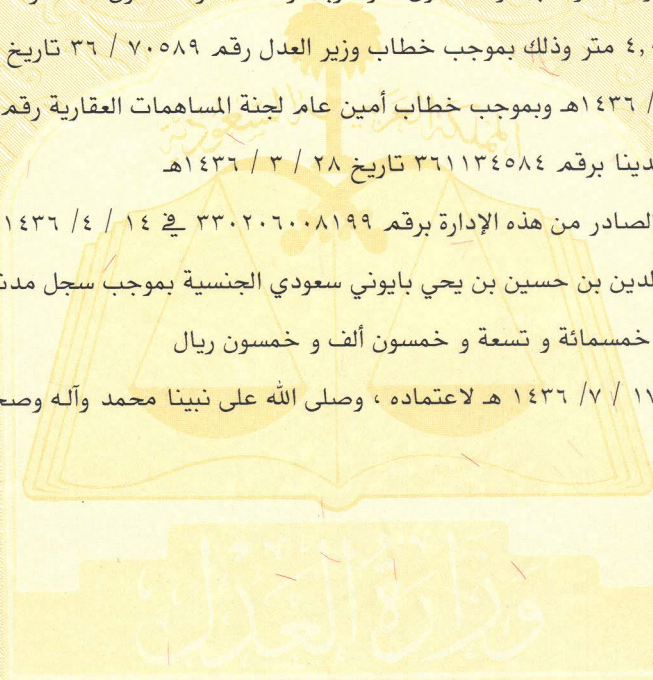 متر وذلك بموجب خطاب وزير العدل رقم ٧٠٥٨٩ / ٣٦ تاريخ
/ ١٤٣٦هـ وبموجب خطاب أمين عام لجنة المساهمات العقارية رقم
لدينا برقم ٣٦١١٣٤٥٨٤ تاريخ ٢٨ / ٣ / ١٤٣٦هـ
الصادر من هذه الإدارة برقم ٣٣٠٢٠٦٠٠٨١٩٩ في ١٤ / ٤ / ١٤٣٦
الدين بن حسين بن يحي بايوني سعودي الجنسية بموجب سجل
خمسمائة و تسعة و خمسون ألف و خمسون ريال
١٧ / ٧/ ١٤٣٦ هـ لاعتماده ، وصلى الله على نبينا محمد وآله
المملكة العربية السعودية
وزارة العدل